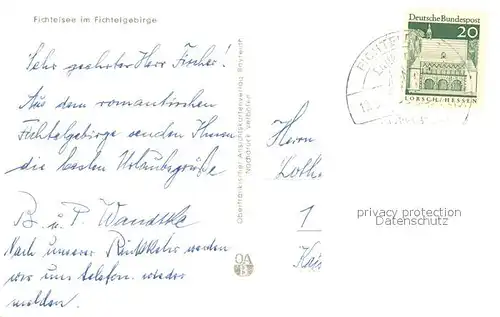 Fichtelsee im Fichtelgebirge
Sehr geehrter Herr Fischer!
Aus dem romantischen
Fichtelgebirge senden Ihnen
die besten Urlaubsgrüße
B. u. P. Wandtke
Nach unserer Rückkehr werden
wir uns telefon. wieder
melden.
Oberfränkischer Ansichtskartenverlag Bayreuth
Nachdruck verboten
OA
B
Deutsche Bundespost
20
LORSCH/HESSEN
FICHTEL
Herrn
Loth
1
privacy protection
Datenschutz